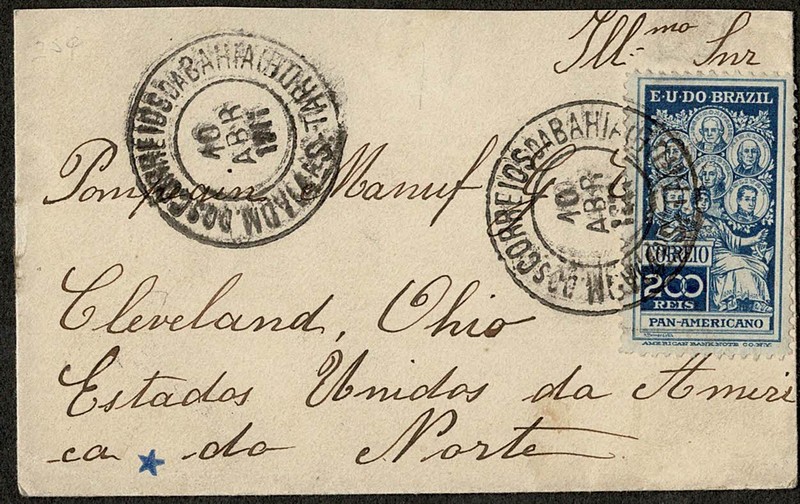 Ill.mo Snr
Manuf
Cleveland, Ohio
Estados Unidos da Ameri
ca do Norte
E·U·DO·BRAZIL
CORREIO
200
REIS
PAN-AMERICANO
AMERICAN BANK NOTE CO. N.Y.
CORREIOS DA BAHIA
10
ABR
CORREIOS DA BAHIA
10
ABR